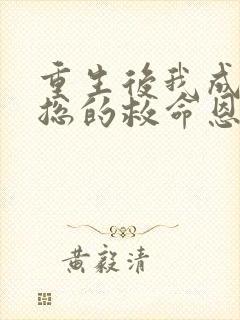 重生後我成
總的救命恩
黃毅清